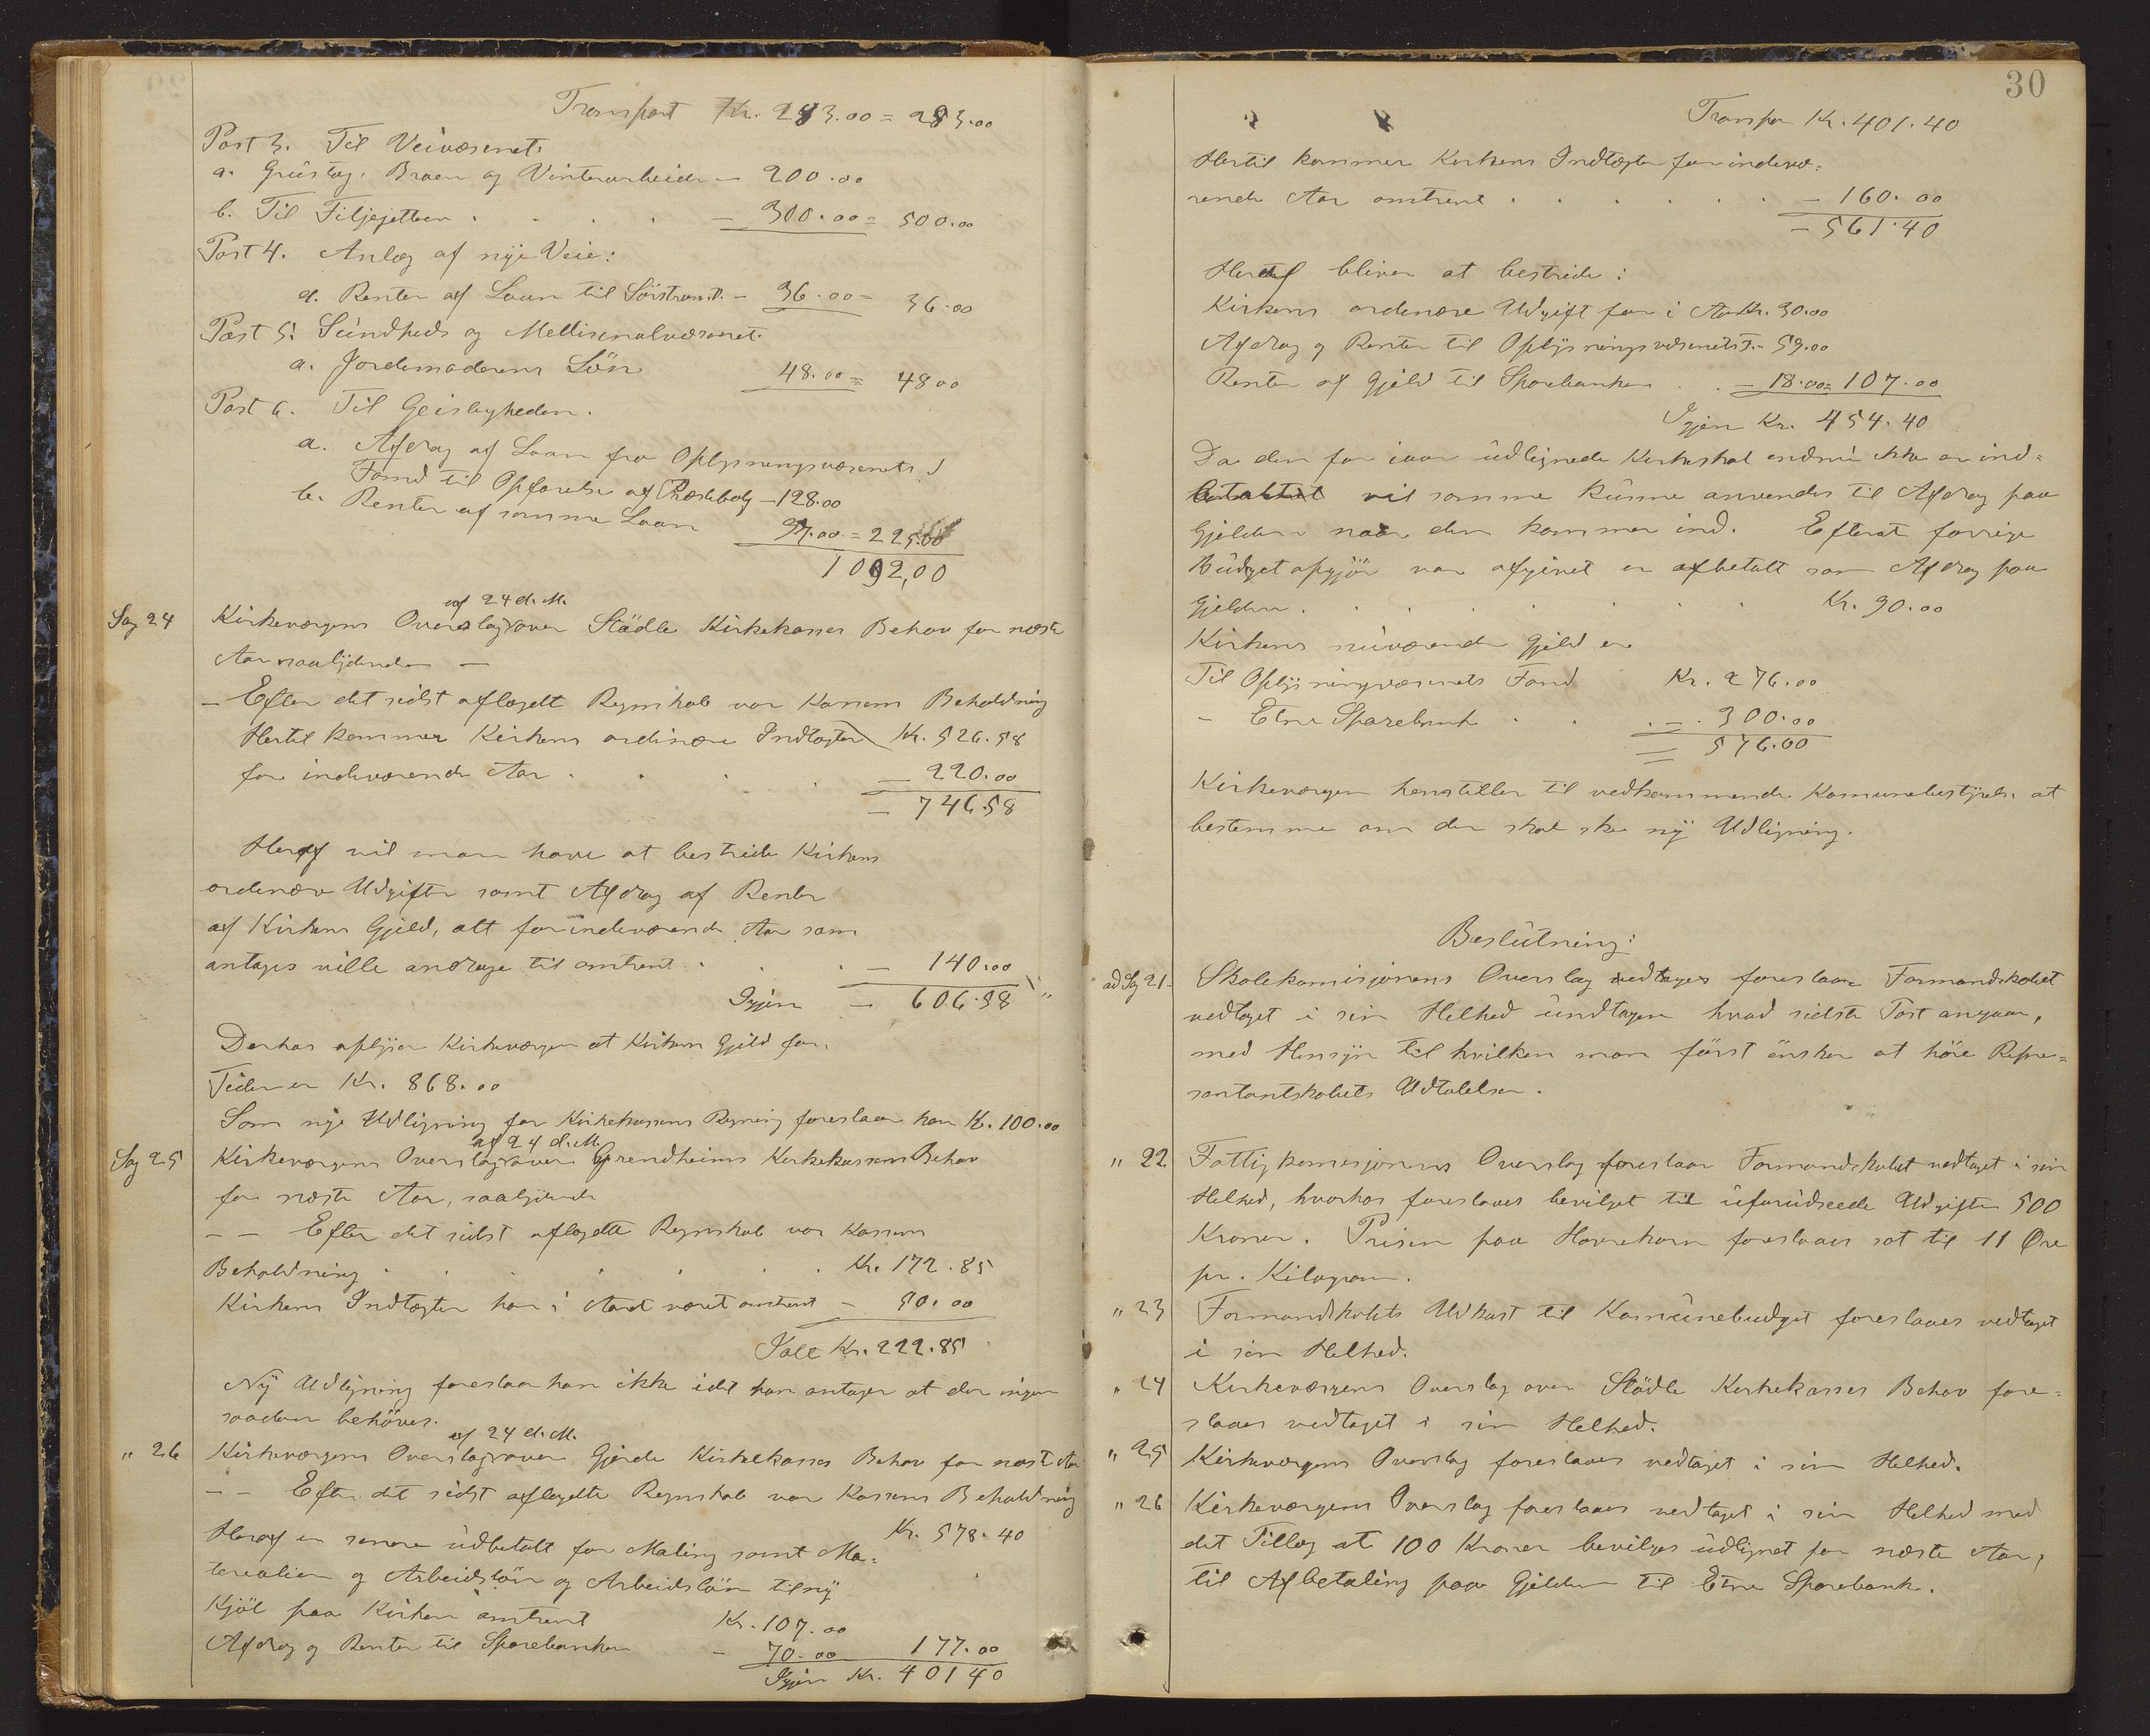 Transport Kr. 283.00 = 283.00
Post 3. Til Veivæsenet
a. Grüstag. Broer og Vinterarbeide — 200.00
b. Til Filjejetteen . . . . — 300.00 = 500.00
Post 4. Anlæg af nye Veie:
a. Renter af Laan til Sörstran.V. — 36.00 = 36.00
Post 5: Sündheds og Mellisenalvæsenet.
a. Jordemoderens Lön 48.00 = 48 00
Post 6. Til Geistligheden.
a. Afdrag af Laan fra Oplysningsvæsenets
Fond til Opførelse af Præstebolig — 128.00
b. Renter af samme Laan 97.00 = 225.00
1092,00
af 24 d. M.
Sag 24 Kirkeværgens Overslag over Städle Kirkekasses Behov for næste
Aar saalydende —
— Efter det sidst aflagdt Regnskab var Kassens Beholdning
Hertil kommer Kirkens ordinære Indtægter Kr. 526.58
for indeværende Aar . . . . — 220.00
— 746.58
Heraf vil man have at bestride Kirkens
ordenære Udgifter samt Afdrag af Renter
af Kirkens Gjeld, alt for indeværende Aar som
antages ville andrage til omtrent . . — 140.00
Igjen — 606.58
Derhos oplyser Kirkeværgen at Kirkens Gjeld for
Tiden er Kr. 868.00
Som nye Udligning for Kirkekassens Regning foreslaar han Kr. 100.00
af 24 d. M.
Sag 25 Kirkeværgens Overslag over Grendheims Kirkekassens Behov
for næste Aar, saalydende
— — Efter det sidst aflagdte Regnskab var Kassens
Beholdning . . . . . . Kr. 172.85
Kirkens Indtægter har i Aaret været omtrent — 50.00
Ialt Kr. 222.85
Ny Udligning foreslaar han ikke idet han antager at der ingen
saadan behöves.
af 24 d. M.
" 26 Kirkeværgens Overslag over Gjerde Kirkekasses Behov for næst Aar
— — Efter det sidst aflagdte Regnskab var Kassens Beholdning
Kr. 578.40
Heraf er senere üdbetalt for Maling samt Ma-
terialier og Arbeidslön og Arbeidslön til ny
Kjöl paa Kirken omtrent Kr. 107.00
Afdrag og Renter til Sparebanken — 70.00 177.00
Igjen Kr. 401 40
30
Transpor Kr. 401.40
Hertil kommer Kirkens Indtægter for indevæ-
rende Aar omtrent . . . . . . — 160.00
— 561.40
Heraf bliver at bestride:
Kirkens ordenære Udgift for i Aar Kr. 30.00
Afdrag og Renter til Oplysningsvæsenets F. — 59.00
Renter af Gjeld til Sparebanken . . — 18.00 = 107.00
Igjen Kr. 454.40
Da den for iaar üdlignede Kirkeskat endnü ikke er ind-
betaltet vil samme künne anvendes til Afdrag paa
Gjelden naar den kommer ind. Efterat forrige
Büdgetopgjör var afgivet er afbetalt som Afdrag paa
Gjelden . . . . . . . Kr. 90.00
Kirkens nüværende Gjeld er
Til Oplysningsvæsenets Fond Kr. 276.00
— Etne Sparebank . . . — 300.00
— 576.00
Kirkeværgen henstiller til vedkommende Komunebestyrelse at
bestemme om der skal ske ny Udligning.
Beslütning:
ad Sag 21. Skolekomisjonens Overslag vedtages foreslaar Formandskabet
vedtaget i sin Helhed ündtagen hvad sidste Post angaar,
med Hensyn til hvilken man först önsker at höre Repre-
sentantskabets Udtalelser.
" 22 Fattigkomisjonens Overslag foreslaar Formandskabet vedtaget i sin
Helhed, hvorhos foreslaaes bevilget til üforüdseede Udgifter 500
Kroner. Prisen paa Havrekorn foreslaaes sat til 11 Øre
pr. Kilogram.
" 23 Formandskabets Udkast til Komünebudget foreslaaes vedtaget
i sin Helhed.
" 24 Kirkeværgens Overslag over Städle Kirkekasses Behov fore-
slaaes vedtaget i sin Helhed.
" 25 Kirkeværgens Overslag foreslaaes vedtaget i sin Helhed.
" 26 Kirkeværgens Overslag foreslaaes vedtaget i sin Helhed med
det Tillæg at 100 Kroner bevilges üdlignet for næste Aar,
til Afbetaling paa Gjelden til Etne Sparebank.